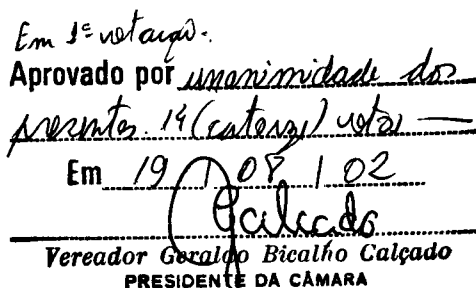 Em 1ª votação.
Aprovado por unanimidade dos
presentes. 14 (catorze) votos —
Em 19 / 08 / 02
Calçado
Vereador Geraldo Bicalho Calçado
PRESIDENTE DA CÂMARA